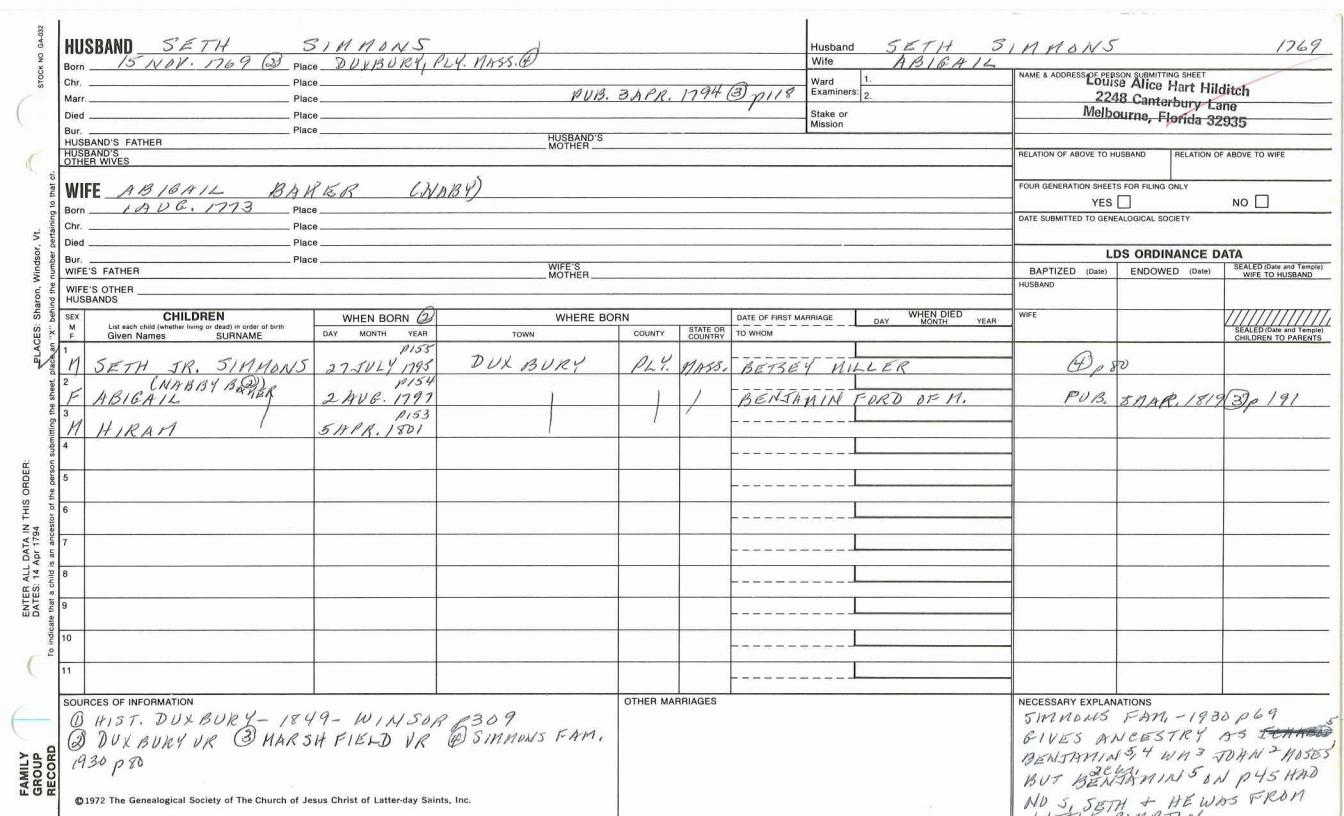 STOCK NO. GA-032
HUSBAND SETH SIMMONS
Born 15 NOV. 1769 ② Place DUXBURY, PLY. MASS. ④
Chr. Place
Marr. Place PUB. 3 APR. 1794 ③ p118
Died Place
Bur. Place
HUSBAND'S FATHER HUSBAND'S MOTHER
HUSBAND'S OTHER WIVES
Husband SETH SIMMONS 1769
Wife ABIGAIL
Ward 1.
Examiners: 2.
Stake or Mission
NAME & ADDRESS OF PERSON SUBMITTING SHEET
Louise Alice Hart Hilditch
2248 Canterbury Lane
Melbourne, Florida 32935
RELATION OF ABOVE TO HUSBAND RELATION OF ABOVE TO WIFE
FOUR GENERATION SHEETS FOR FILING ONLY
YES NO
DATE SUBMITTED TO GENEALOGICAL SOCIETY
WIFE ABIGAIL BAKER (NABY)
Born 1 AUG. 1773 Place
Chr. Place
Died Place
Bur. Place
WIFE'S FATHER WIFE'S MOTHER
WIFE'S OTHER HUSBANDS
LDS ORDINANCE DATA
BAPTIZED (Date) ENDOWED (Date) SEALED (Date and Temple) WIFE TO HUSBAND
HUSBAND
WIFE
SEALED (Date and Temple) CHILDREN TO PARENTS
SEX M F
CHILDREN
List each child (whether living or dead) in order of birth
Given Names SURNAME
WHEN BORN ②
DAY MONTH YEAR
WHERE BORN
TOWN COUNTY STATE OR COUNTRY
DATE OF FIRST MARRIAGE
TO WHOM
WHEN DIED
DAY MONTH YEAR
1 p155
M SETH JR. SIMMONS 27 JULY 1795 DUXBURY PLY. MASS. BETSEY MILLER ④ p80
2 (NABBY BAKER ②) p154
F ABIGAIL 2 AUG. 1797 BENJAMIN FORD OF M. PUB. 8 MAR. 1819 ③ p 191
3 p153
M HIRAM 5 APR. 1801
4
5
6
7
8
9
10
11
SOURCES OF INFORMATION
① HIST. DUXBURY - 1849 - WINSOR p309
② DUXBURY VR ③ MARSHFIELD VR ④ SIMMONS FAM.
1930 p80
OTHER MARRIAGES
NECESSARY EXPLANATIONS
SIMMONS FAM. - 1930 p69
GIVES ANCESTRY AS
BENJAMIN 5,4 WM 3 JOHN 2 MOSES
BUT BENJAMIN 5 ON p45 HAD
NO S. SETH + HE WAS FROM
©1972 The Genealogical Society of The Church of Jesus Christ of Latter-day Saints, Inc.
PLACES: Sharon, Windsor, Vt.
To indicate that a child is an ancestor of the person submitting the sheet, place an "X" behind the number pertaining to that ch.
ENTER ALL DATA IN THIS ORDER:
DATES: 14 Apr 1794
FAMILY
GROUP
RECORD